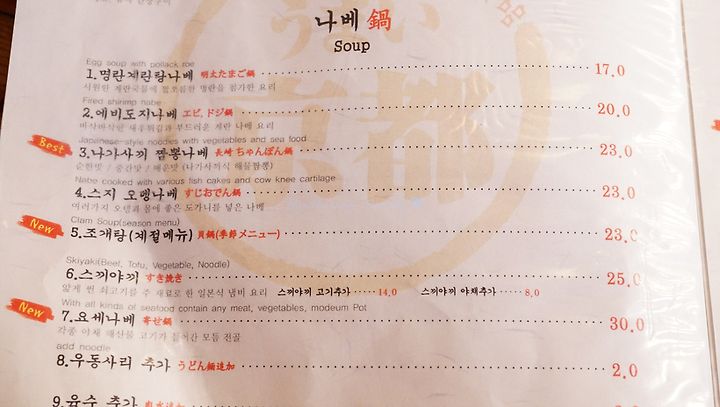 나베 鍋
Soup
Egg soup with pollack roe
1.명란계란탕나베 明太たまご鍋 17.0
시원한 계란국물에 짭조름한 명란을 첨가한 요리
Fired shrimp nabe
2.에비도지나베 エビ,ドジ鍋 20.0
바삭바삭한 새우튀김과 부드러운 계란 나베 요리
Japanese-style noodles with vegetables and sea food
Best 3.나가사끼 짬뽕나베 長崎ちゃんぽん鍋 23.0
순한맛 / 중간맛 / 매운맛 (나가사끼식 해물짬뽕)
Nabe cooked with various fish cakes and cow knee cartilage
4.스지 오뎅나베 すじおでん鍋 23.0
여러가지 오뎅과 몸에 좋은 도가니를 넣은 나베
Clam Soup(season menu)
New 5.조개탕(계절메뉴) 貝鍋(季節メニュー) 23.0
Skiyaki(Beef, Tofu, Vegetable, Noodle)
6.스끼야끼 すき挽き 25.0
얇게 썬 쇠고기를 주 재료로 한 일본식 냄비 요리 스끼야끼 고기추가 14.0 스끼야끼 야채추가 8.0
With all kinds of seafoog contain any meat, vegetables, modeum Pot
New 7.요세나베 寄せ鍋 30.0
각종 야채 해산물 고기가 들어간 모듬 전골
add noodle
8.우동사리 추가 うどん鍋追加 2.0
9.육수 추가